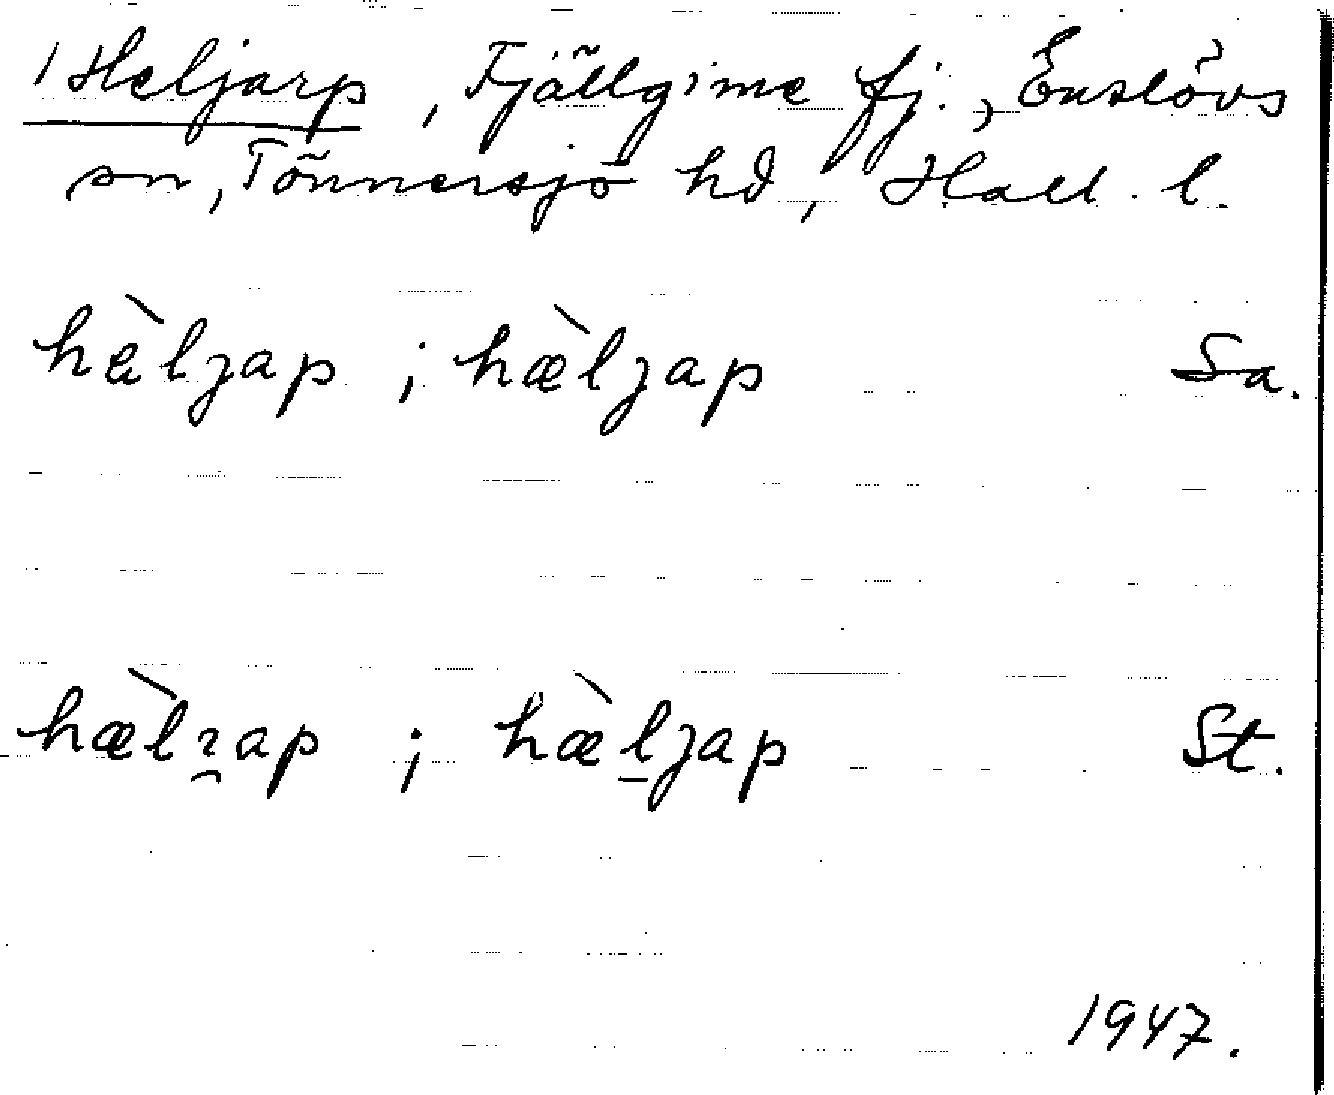 1 Heljarp, Fjällgime fj., Enslövs
sn, Tönnersjö hd, Hall. l.
hèljap ; hæ̀ljap Sa.
hæ̀lı̯ap ; hæ̀ḻjap St.
1947.